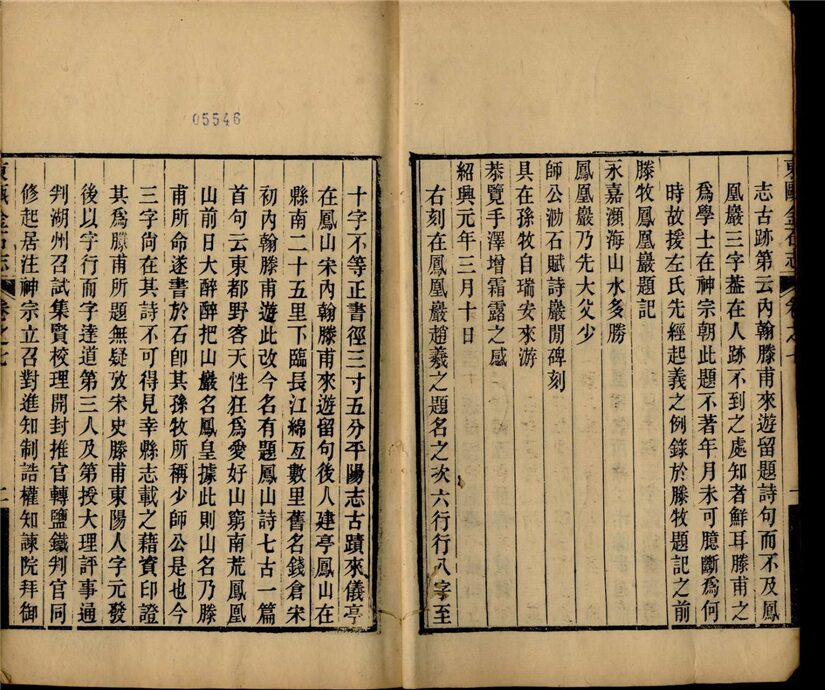 東甌金石志
卷之七
志古跡第云內翰滕甫來遊留題詩句而不及鳳
凰巖三字葢在人跡不到之處知者鮮耳滕甫之
爲學士在神宗朝此題不著年月未可臆斷爲何
時故援左氏先經起義之例錄於滕牧題記之前
滕牧鳳凰巖題記
永嘉瀕海山水多勝
鳳凰巖乃先大父少
師公泐石賦詩巖閒碑刻
具在孫牧自瑞安來游
恭覽手澤增霜露之感
紹興元年三月十日
右刻在鳳凰巖趙羲之題名之次六行行八字至
05546
十字不等正書徑三寸五分平陽志古蹟來儀亭
在鳳山宋內翰滕甫來遊留句後人建亭鳳山在
縣南二十五里下臨長江綿亙數里舊名錢倉宋
初內翰滕甫遊此改今名有題鳳山詩七古一篇
首句云東都野客天性狂爲愛好山窮南荒鳳凰
山前日大醉醉把山巖名鳳皇據此則山名乃滕
甫所命遂書於石卽其孫牧所稱少師公是也今
三字尙在其詩不可得見幸縣志載之藉資印證
其爲滕甫所題無疑攷宋史滕甫東陽人字元發
後以字行而字達道第三人及第授大理評事通
判湖州召試集賢校理開封推官轉鹽鐵判官同
修起居注神宗立召對進知制誥權知諫院拜御
東甌金石志
卷之七
二